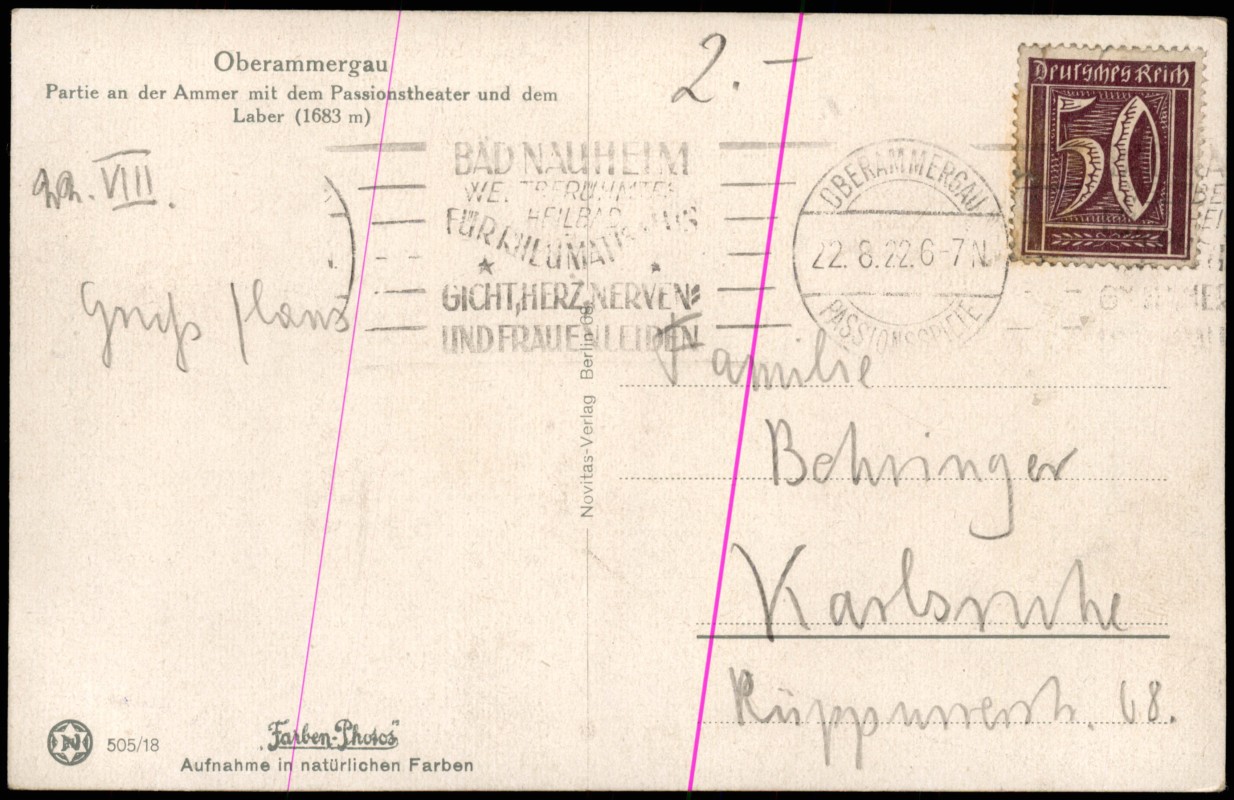 Oberammergau
Partie an der Ammer mit dem Passionstheater und dem
Laber (1683 m)
2.-
Deutsches Reich
50
22. VIII.
Gruß Hans
BAD NAUHEIM
WELTBERÜHMTES
HEILBAD
FÜR RHEUMATISMUS
GICHT, HERZ, NERVEN=
UND FRAUENLEIDEN
OBERAMMERGAU
22.8.22.6-7N.
PASSIONSSPIELE
Familie
Behringer
Karlsruhe
Rüppurrerstr. 68.
Novitas-Verlag Berlin 68
N
505/18
"Farben-Photos"
Aufnahme in natürlichen Farben